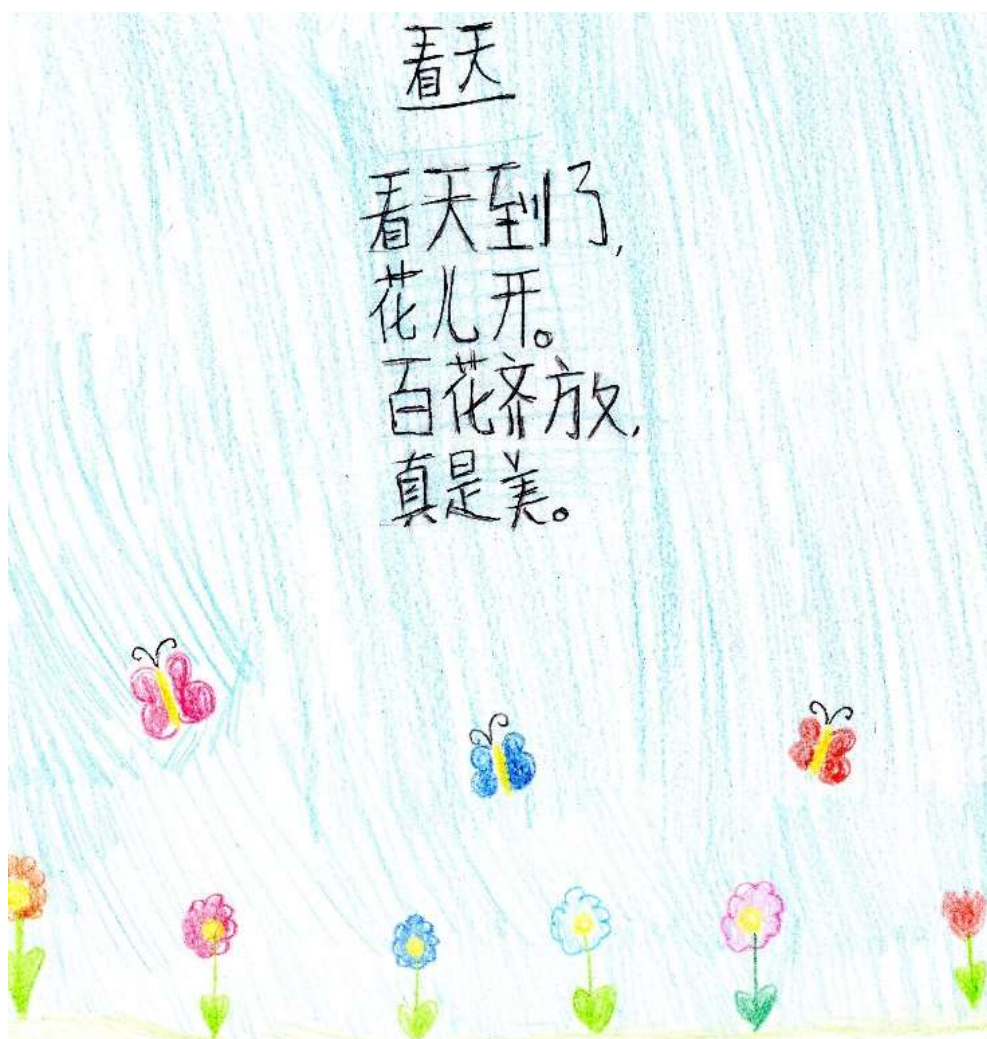 看天
看天到了,
花儿开。
百花齐放,
真是美。